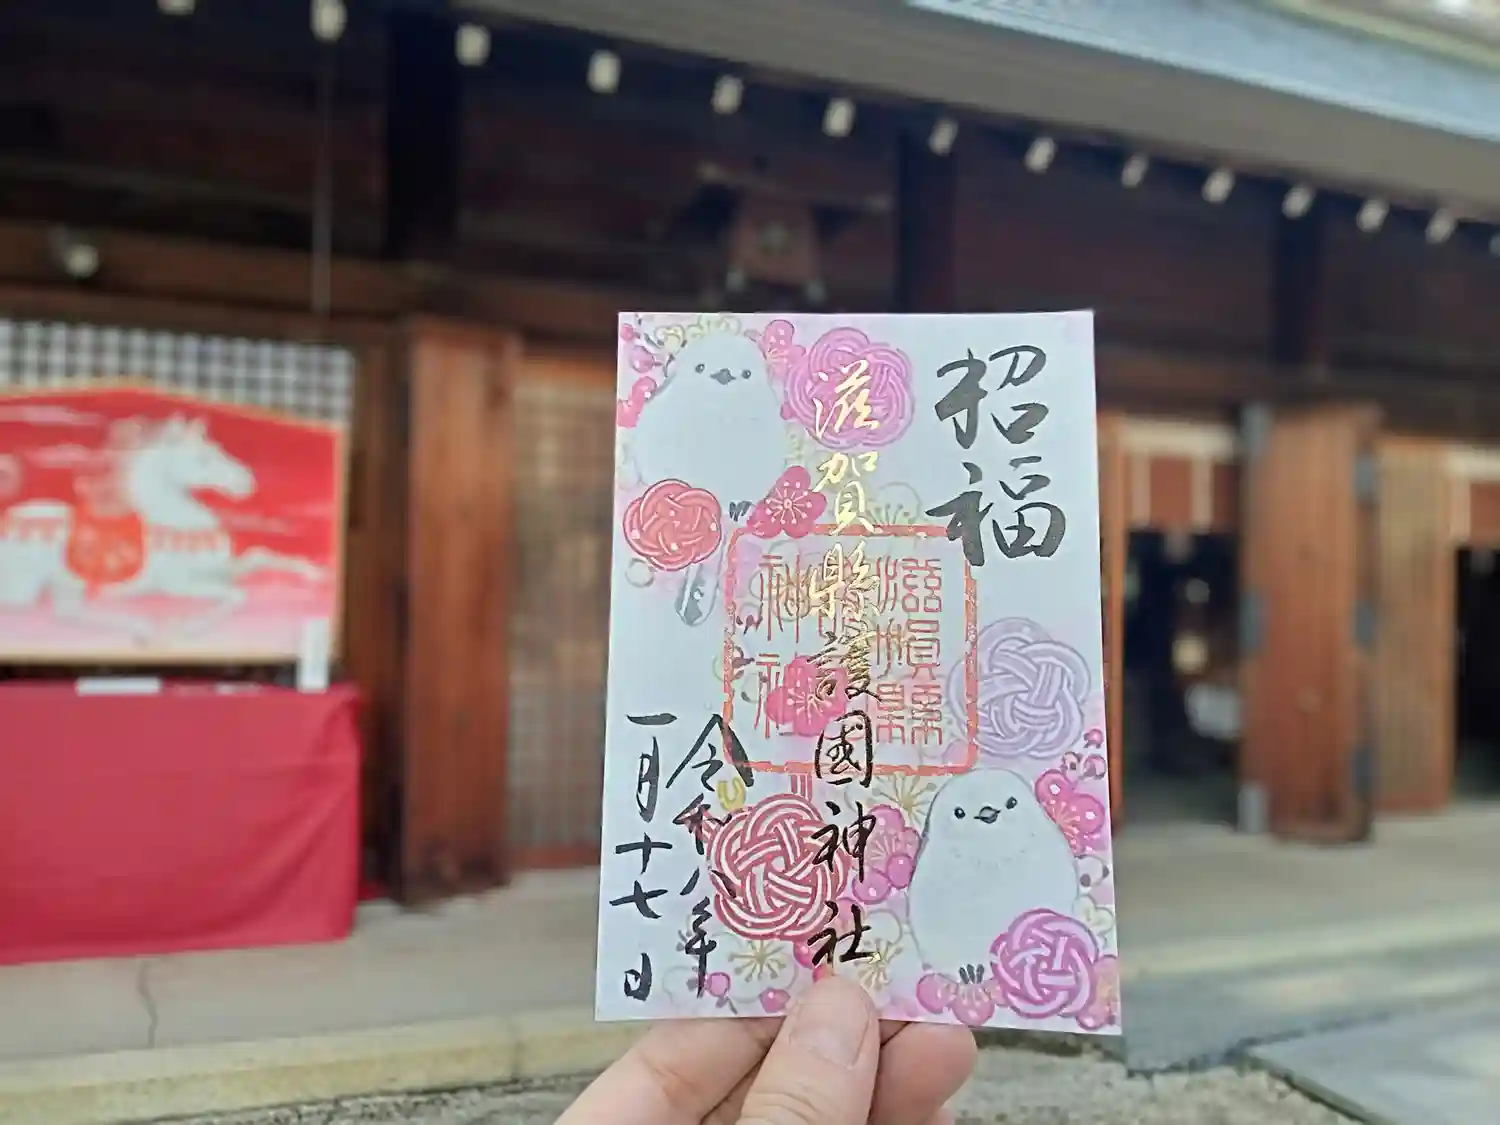 招福
滋賀縣護國神社
滋賀縣
神社
令和八年
一月十七日